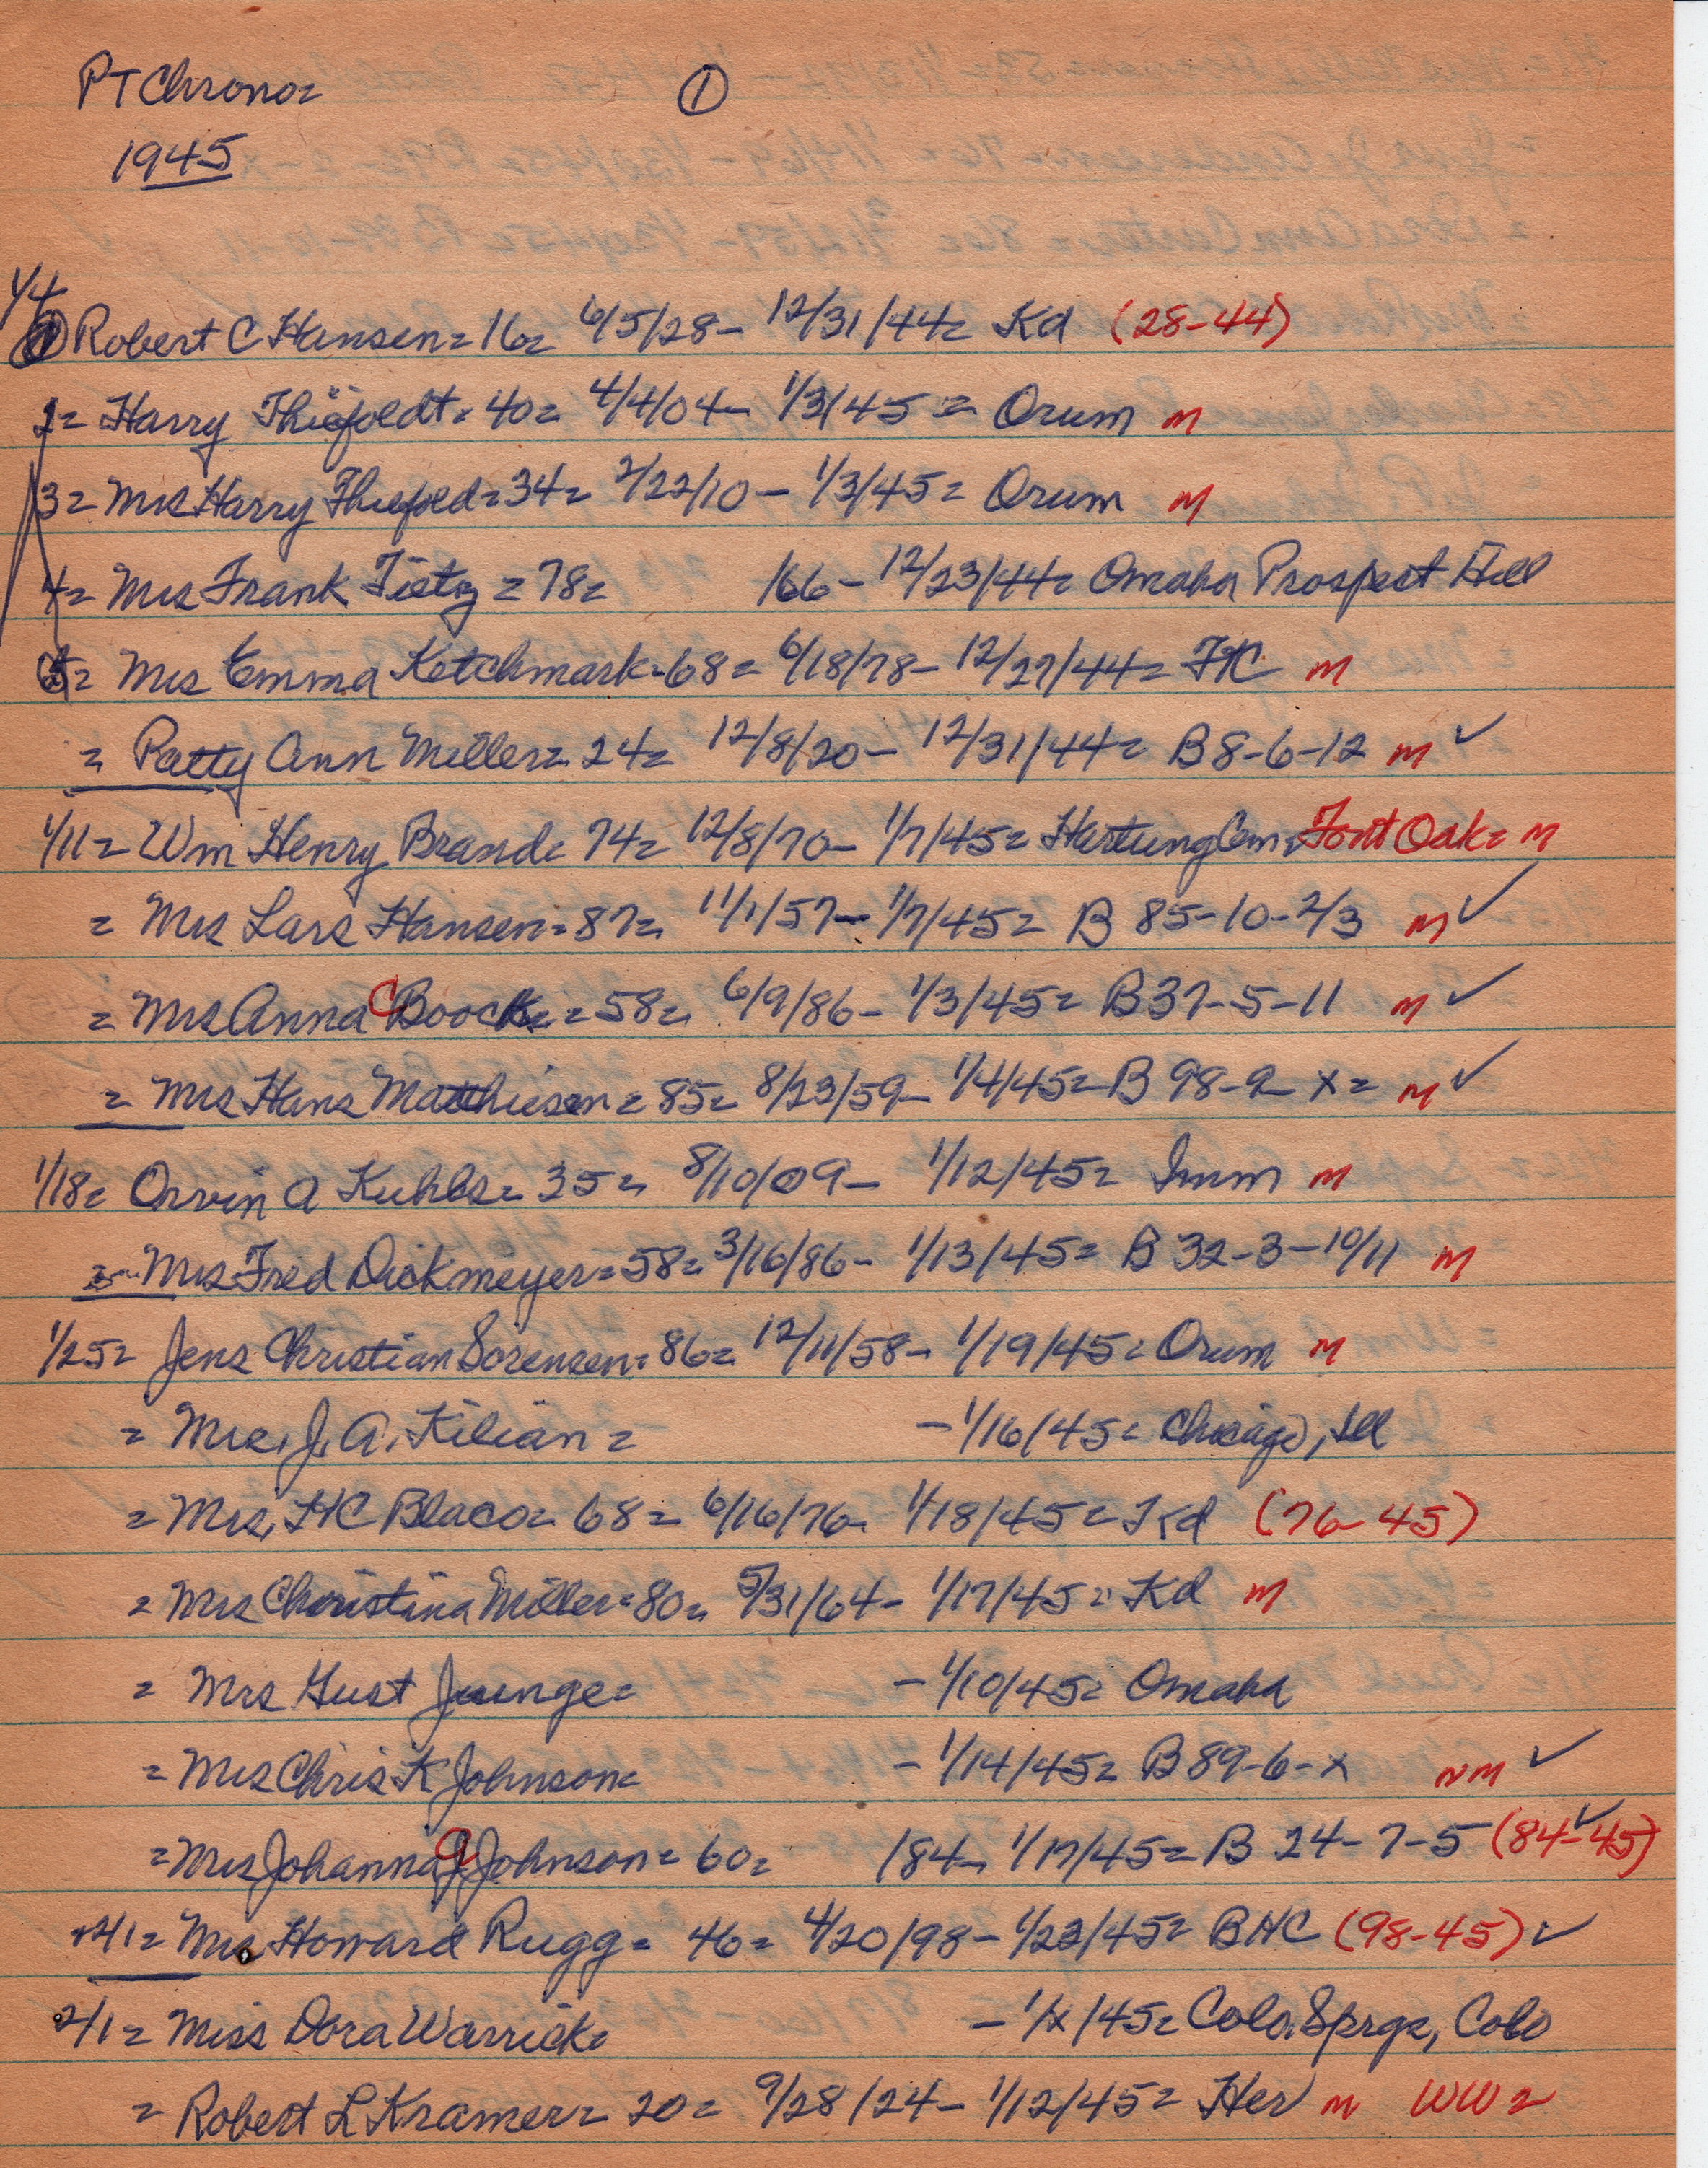 PT Chrono= ①
1945
1/4
① Robert C Hansen= 16= 6/5/28- 12/31/44= Kd (28-44)
2= Harry Thiefoldt= 40= 4/4/04- 1/3/45= Orum M
3= Mrs Harry Thiefold= 34= 2/22/10- 1/3/45= Orum M
4= Mrs Frank Tietz= 78= /66- 12/23/44= Omaha Prospect Hill
5= Mrs Emma Ketchmark=68= 6/18/78- 12/27/44= FtC M
= Patty Ann Miller= 24= 12/8/20- 12/31/44= B 8-6-12 M ✓
1/11= Wm Henry Brand= 74= 12/8/70- 1/7/45= Hartung Cem, Font Oak= M
= Mrs Lars Hansen= 87= 11/1/57- 1/7/45= B 85-10-2/3 M ✓
= Mrs Anna C Boock= =58= 6/9/86- 1/3/45= B37-5-11 M ✓
= Mrs Hans Matthiesen= 85= 8/23/59- 1/4/45= B 98-9-x= M ✓
1/18= Orvin A Kuhls= 35= 8/10/09- 1/12/45= Imm M
= Mrs Fred Dickmeyer=58= 3/16/86- 1/13/45= B 32-3-10/11 M
1/25= Jens Christian Sorensen= 86= 12/11/58- 1/19/45= Orum M
= Mrs. J. A. Kilian= -1/16/45= Chicago, Ill
= Mrs. HC Blaco= 68= 6/16/76- 1/18/45= Kd (76-45)
= Mrs Christina Miller= 80= 5/31/64- 1/17/45= Kd M
= Mrs Gust Juunge= -1/10/45= Omaha
= Mrs Chris K Johnson= -1/14/45= B 89-6-x NM ✓
= Mrs Johanna J Johnson= 60= /84- 1/17/45= B 24-7-5 (84-45) ✓
2/1= Mrs Howard Rugg= 46= 4/20/98- 1/23/45= BHC (98-45) ✓
2/1= Miss Dora Warrick= -1/x/45= Colo. Sprgs, Colo
= Robert L Kramer= 20= 9/28/24- 1/12/45= Her M WW2